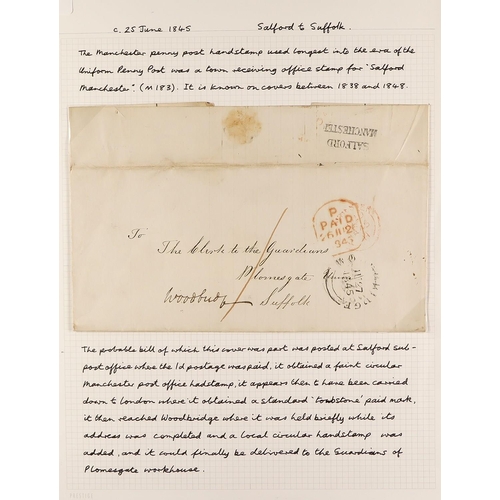 c. 25 June 1845 Salford to Suffolk.
The Manchester penny post handstamp used longest into the era of the
Uniform Penny Post was a town receiving office stamp for "Salford
Manchester" (M183). It is known on covers between 1838 and 1848.
SALFORD
MANCHESTER
P
PAID
1845
To
The Clerk to the Guardians
Plomesgate Union
Woodbridge
Suffolk
1845
The probable bill of which this cover was part was posted at Salford sub-
post office where the 1d postage was paid, it obtained a faint circular
Manchester post office hadstamp, it appears then to have been carried
down to London where it obtained a standard 'tombstone' paid mark,
it then reached Woodbridge where it was held briefly while its
address was completed and a local circular handstamp was
added, and it could finally be delivered to the Guardians of
Plomesgate workhouse.